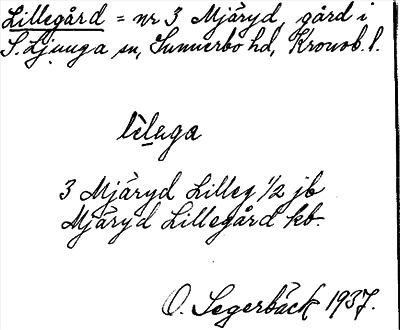 Lillegård = nr 3 Mjäryd, gård i
S. Ljunga sn, Sunnerbo hd, Kronob. l.
lìlaga
3 Mjäryd Lilleg 1/2 jb
Mjäryd Lillegård kb.
O. Segerbäck 1937.